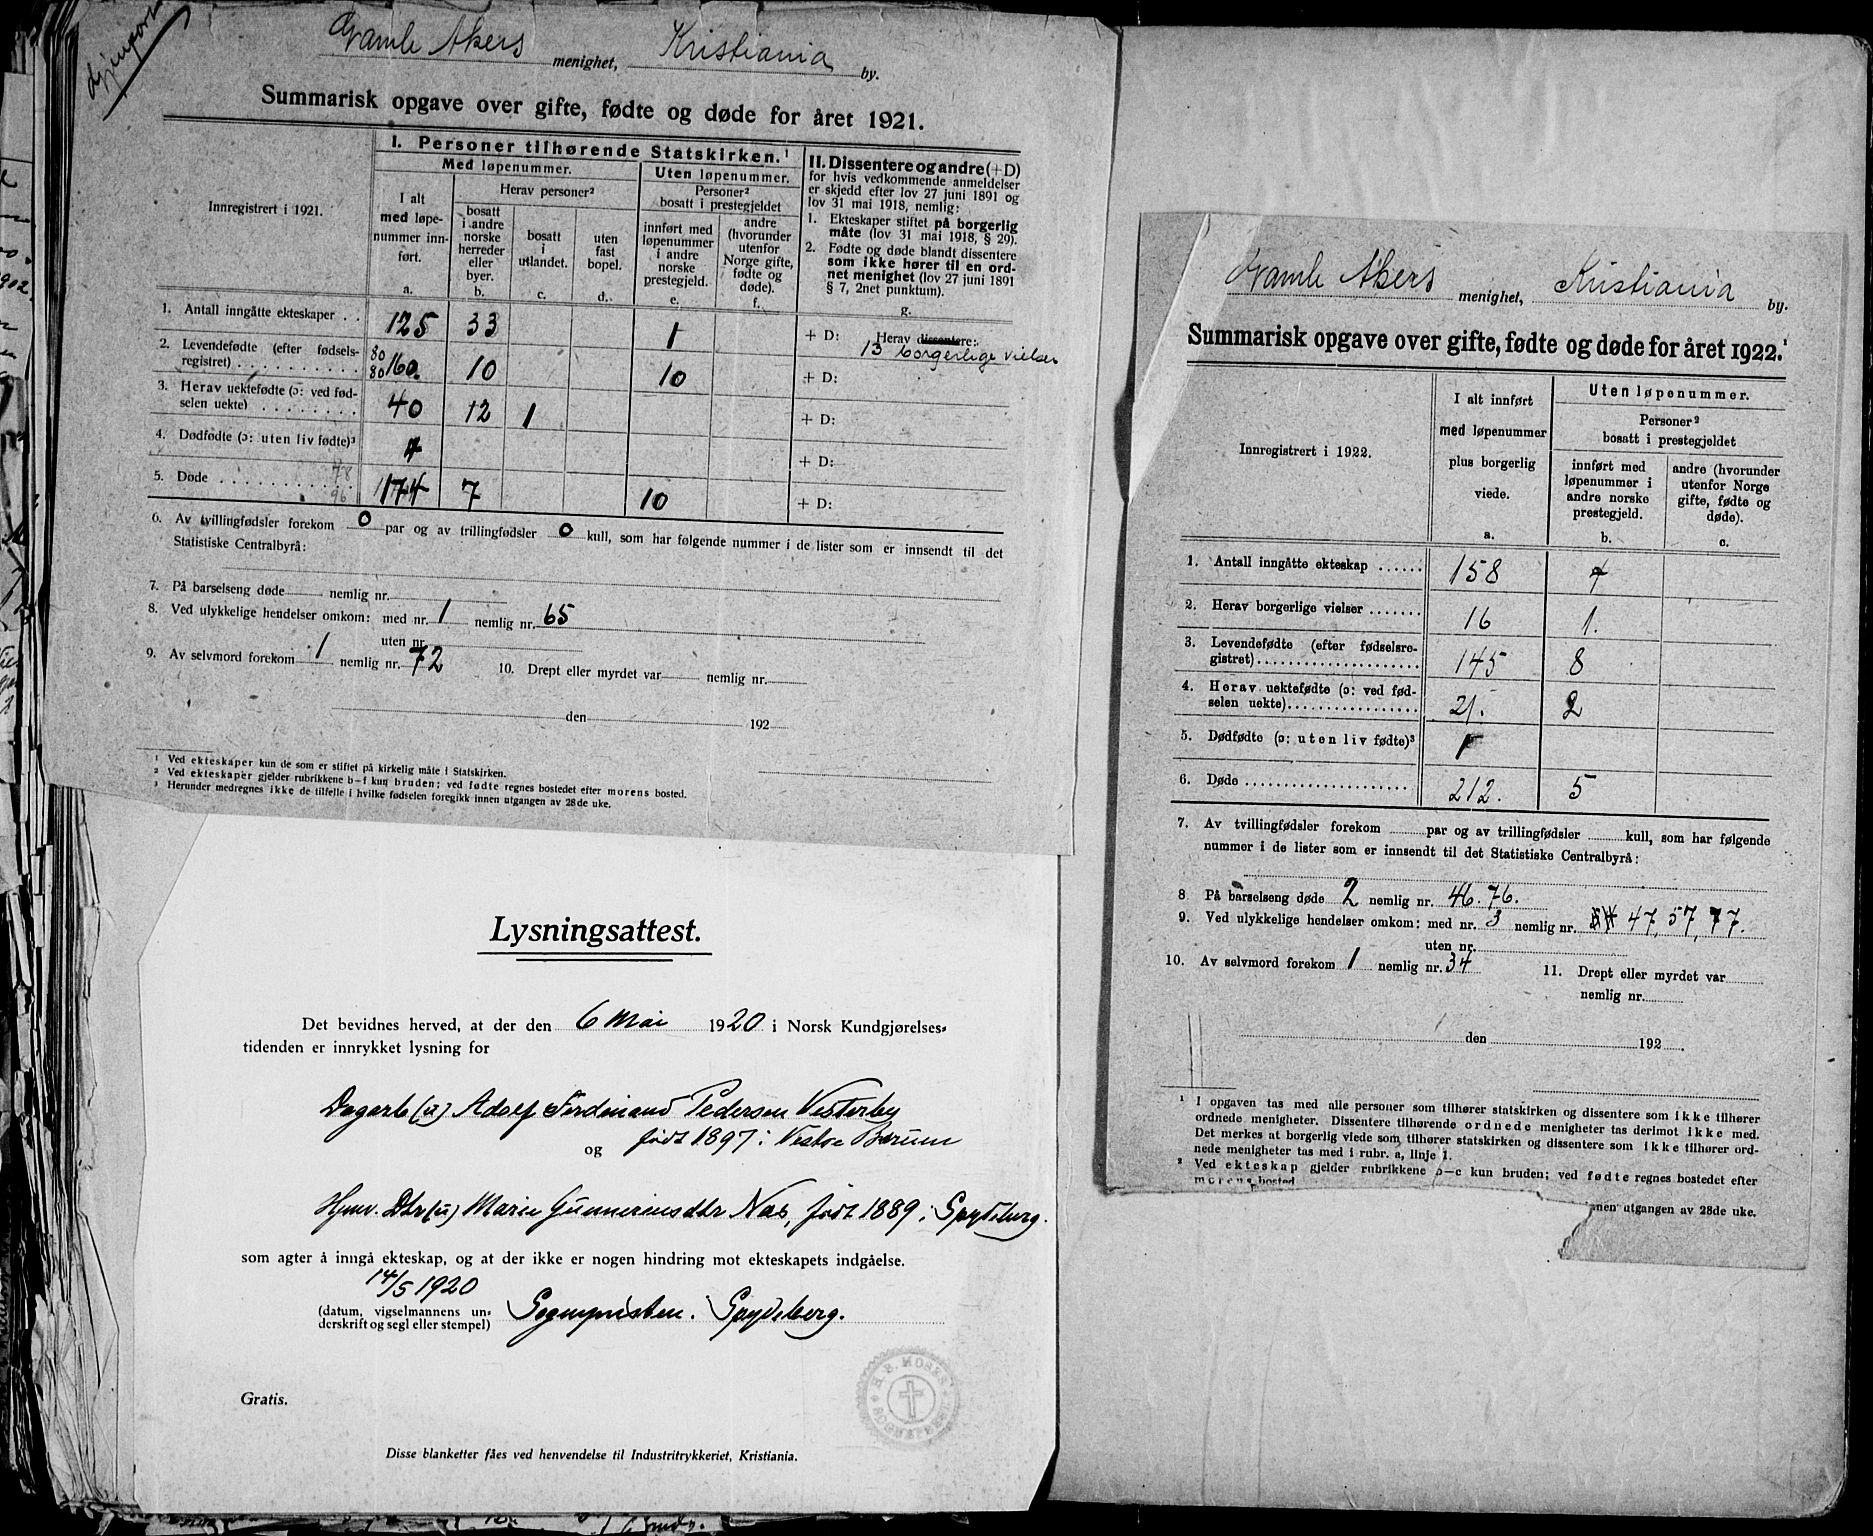 Gjenpart
Gamle Akers menighet, Kristiania by.
Summarisk opgave over gifte, fødte og døde for året 1921.
Innregistrert i 1921.
I. Personer tilhørende Statskirken.¹
Med løpenummer.
I alt med løpenummer innført.
a.
Herav personer²
bosatt i andre norske herreder eller byer.
b.
bosatt i utlandet.
c.
uten fast bopel.
d.
Uten løpenummer.
Personer² bosatt i prestegjeldet
innført med løpenummer i andre norske prestegjeld.
e.
andre (hvorunder utenfor Norge gifte, fødte og døde).
f.
II. Dissentere og andre (+ D)
for hvis vedkommende anmeldelser
er skjedd efter lov 27 juni 1891 og
lov 31 mai 1918, nemlig:
1. Ekteskaper stiftet på borgerlig
måte (lov 31 mai 1918, § 29).
2. Fødte og døde blandt dissentere
som ikke hører til en ord-
net menighet (lov 27 juni 1891
§ 7, 2net punktum).
g.
1. Antall inngåtte ekteskaper . . 125 33 1 + D: Herav dissentere:
13 borgerlige vielser
2. Levendefødte (efter fødsels-
registret) 80 80 160. 10 10 + D:
3. Herav uektefødte (ɔ: ved fød-
selen uekte) 40 12 1 + D:
4. Dødfødte (ɔ: uten liv fødte)³ 4 + D:
5. Døde 78 96 174 7 10 + D:
6. Av tvillingfødsler forekom 0 par og av trillingfødsler 0 kull, som har følgende nummer i de lister som er innsendt til det
Statistiske Centralbyrå:
7. På barselseng døde nemlig nr.
8. Ved ulykkelige hendelser omkom: med nr. 1 nemlig nr. 65
uten nr.
9. Av selvmord forekom 1 nemlig nr. 72 10. Drept eller myrdet var nemlig nr.
den 192
¹ Ved ekteskaper kun de som er stiftet på kirkelig måte i Statskirken.
² Ved ekteskaper gjelder rubrikkene b–f kun bruden; ved fødte regnes bostedet efter morens bosted.
³ Herunder medregnes ikke de tilfelle i hvilke fødselen foregikk innen utgangen av 28de uke.
Lysningsattest.
Det bevidnes herved, at der den 6 Mai 1920 i Norsk Kundgjørelses-
tidenden er innrykket lysning for
Dagarb (u) Adolf Ferdinand Pedersen Vesterby
født 1897 i Vestre Bærum
og
Hjmv. Dtr (u) Marie Gunneriusdtr Næs, født 1889 i Spydeberg.
som agter å inngå ekteskap, og at der ikke er nogen hindring mot ekteskapets indgåelse.
14/5 1920
(datum, vigselmannens un-
derskrift og segl eller stempel) Sognepresten i Spydeberg.
Gratis.
Disse blanketter fåes ved henvendelse til Industritrykkeriet, Kristiania.
Gamle Akers menighet, Kristiania by.
Summarisk opgave over gifte, fødte og døde for året 1922.¹
Innregistrert i 1922.
I alt innført
med løpenummer
plus borgerlig
viede.
a.
Uten løpenummer.
Personer²
bosatt i prestegjeldet
innført med løpenummer i andre norske prestegjeld.
b.
andre (hvorunder utenfor Norge gifte, fødte og døde).
c.
1. Antall inngåtte ekteskap 158 4
2. Herav borgerlige vielser 16 1.
3. Levendefødte (efter fødselsre-
gistret) 145 8
4. Herav uektefødte (ɔ: ved fød-
selen uekte) 21. 2
5. Dødfødte (ɔ: uten liv fødte)³ 1
6. Døde 212. 5
7. Av tvillingfødsler forekom par og av trillingfødsler kull, som har følgende
nummer i de lister som er innsendt til det Statistiske Centralbyrå:
8 På barselseng døde 2 nemlig nr. 46. 76.
9. Ved ulykkelige hendelser omkom: med nr. 3 nemlig nr. 47, 57, 77.
uten nr.
10. Av selvmord forekom 1 nemlig nr. 34 11. Drept eller myrdet var
nemlig nr.
den 192
¹ I opgaven tas med alle personer som tilhører statskirken og dissentere som ikke tilhører
ordnede menigheter. Dissentere tilhørende ordnede menigheter tas derimot ikke med.
Det merkes at borgerlig viede som tilhører statskirken og dissentere som ikke tilhører ord-
nede menigheter tas med i rubr. a, linje 1.
² Ved ekteskap gjelder rubrikkene b–c kun bruden; ved fødte regnes bostedet efter
morens bosted
innen utgangen av 28de uke.